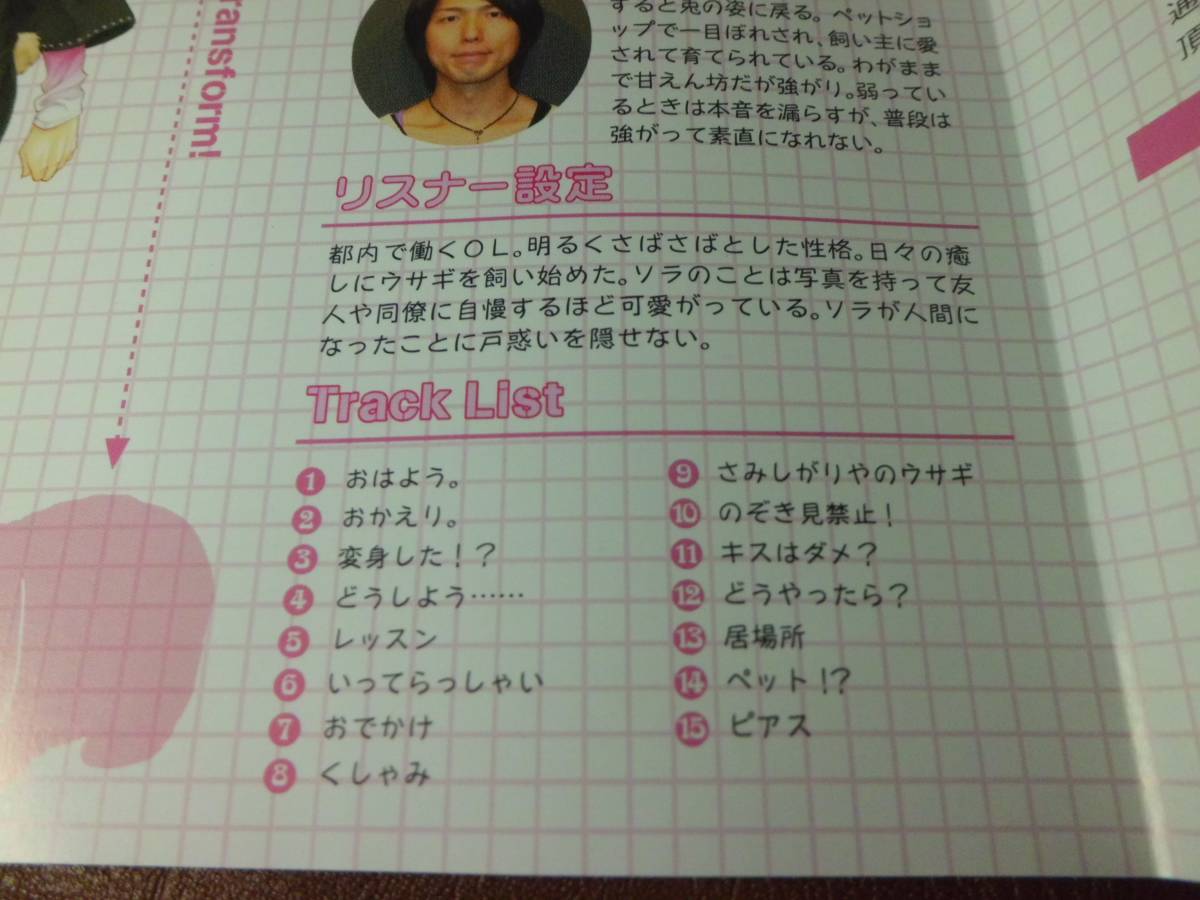 ransform!
すると兎の姿に戻る。ペットショ
ップで一目ぼれされ、飼い主に愛
されて育てられている。わがまま
で甘えん坊だが強がり。弱ってい
るときは本音を漏らすが、普段は
強がって素直になれない。
リスナー設定
都内で働くOL。明るくさばさばとした性格。日々の癒
しにウサギを飼い始めた。ソラのことは写真を持って友
人や同僚に自慢するほど可愛がっている。ソラが人間に
なったことに戸惑いを隠せない。
Track List
1 おはよう。
2 おかえり。
3 変身した!?
4 どうしよう……
5 レッスン
6 いってらっしゃい
7 おでかけ
8 くしゃみ
9 さみしがりやのウサギ
10 のぞき見禁止!
11 キスはダメ?
12 どうやったら?
13 居場所
14 ペット!?
15 ピアス
頂